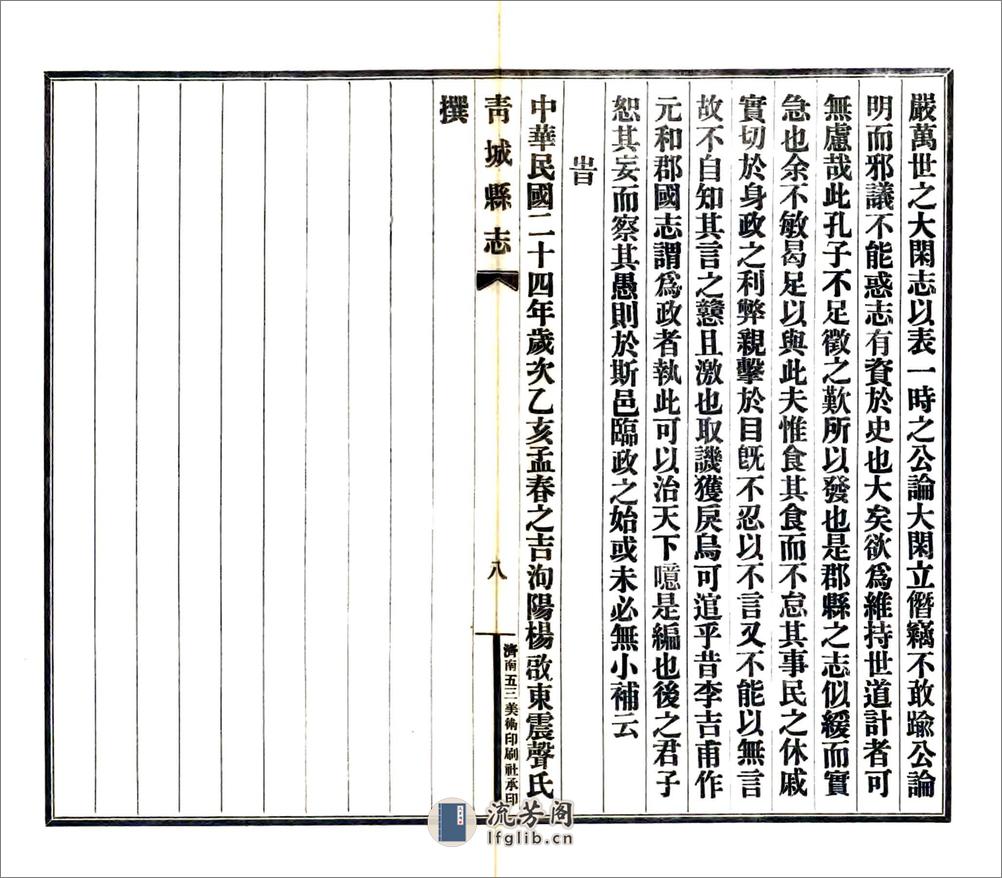 嚴萬世之大閑志以表一時之公論大閑立僭竊不敢踰公論
明而邪議不能惑志有資於史也大矣欲爲維持世道計者可
無慮哉此孔子不足徵之歎所以發也是郡縣之志似緩而實
急也余不敏曷足以與此夫惟食其食而不怠其事民之休戚
實切於身政之利弊親擊於目旣不忍以不言又不能以無言
故不自知其言之戇且激也取譏獲戾烏可逭乎昔李吉甫作
元和郡國志謂爲政者執此可以治天下噫是編也後之君子
恕其妄而察其愚則於斯邑臨政之始或未必無小補云
旹
中華民國二十四年歲次乙亥孟春之吉洵陽楊啟東震聲氏
青城縣志
八
濟南五三美術印刷社承印
撰
流芳阁
lfglib.cn